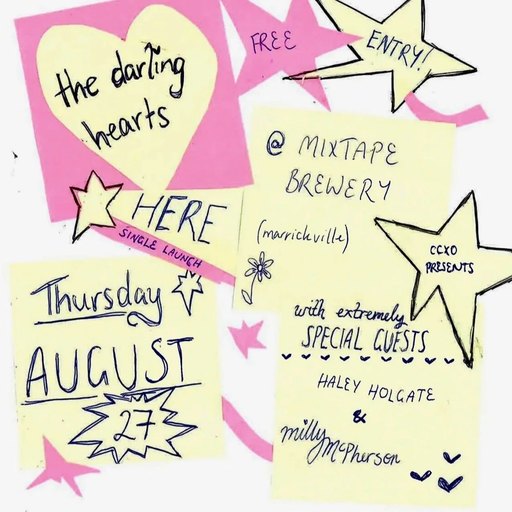 the darling
hearts
FREE
ENTRY!
HERE
SINGLE LAUNCH
@ MIXTAPE
BREWERY
(marrickville)
CCXO
PRESENTS
Thursday
AUGUST
27
with extremely
SPECIAL GUESTS
HALEY HOLGATE
&
milly McPherson